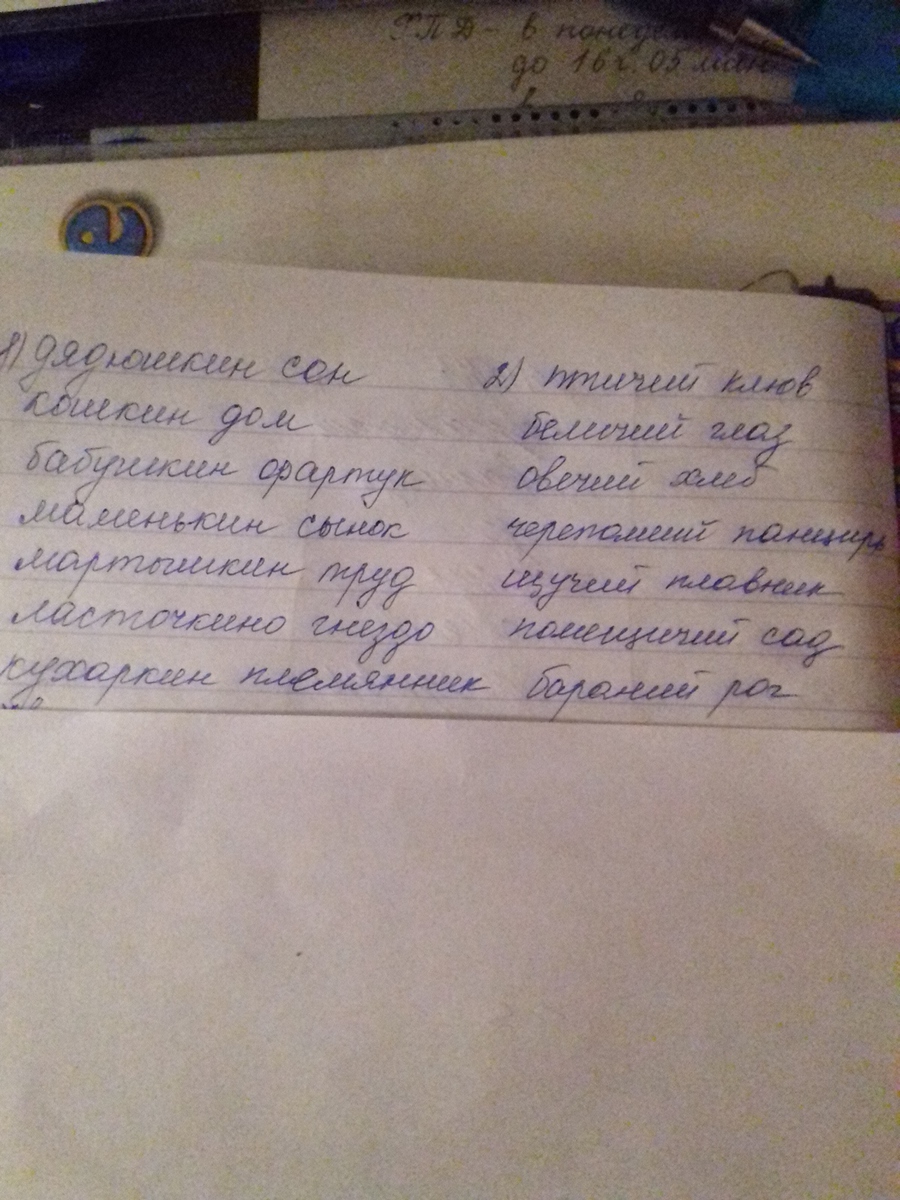 ГПД - в понедел
до 16 г. 05 мин
1) дядюшкин сон
кошкин дом
бабушкин фартук
маменькин сынок
мартышкин труд
ласточкино гнездо
кухаркин племянник
2) птичий клюв
беличий глаз
овечий хлеб
черепаший панцирь
щучий плавник
помещичий сад
бараний рог